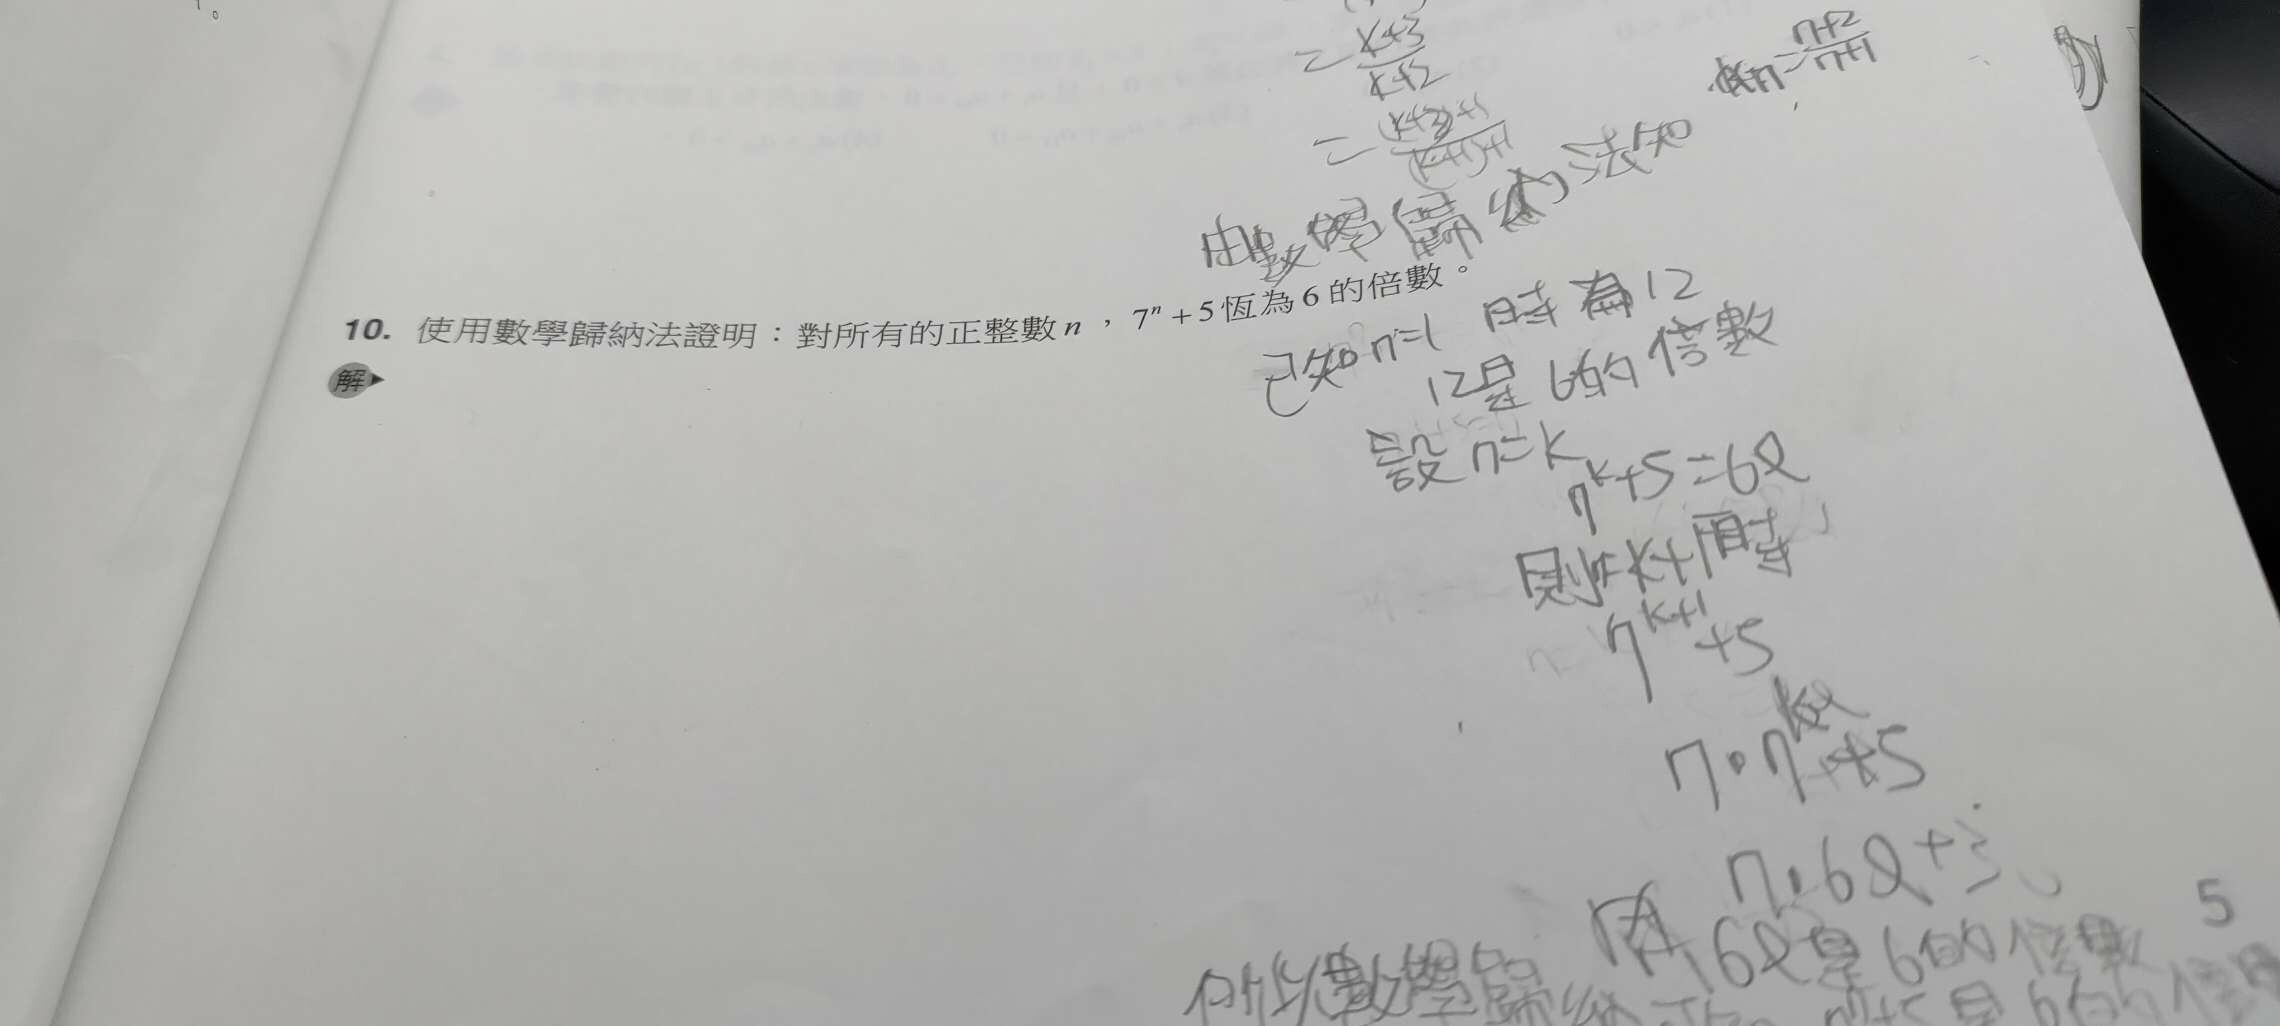 = k+3/k+2
= (k+2)+1/(k+1)+1
n+2/n+1
由數學歸納法知
10. 使用數學歸納法證明：對所有的正整數 n ， 7ⁿ + 5 恆為 6 的倍數。
解
已知 n=1 時為12
12是6的倍數
設 n=k
7ᵏ+5=6Q
則n=k+1時
7ᵏ⁺¹+5
7·7 +5
7·6Q+3
因6Q是6的倍數
5
所以數學歸納